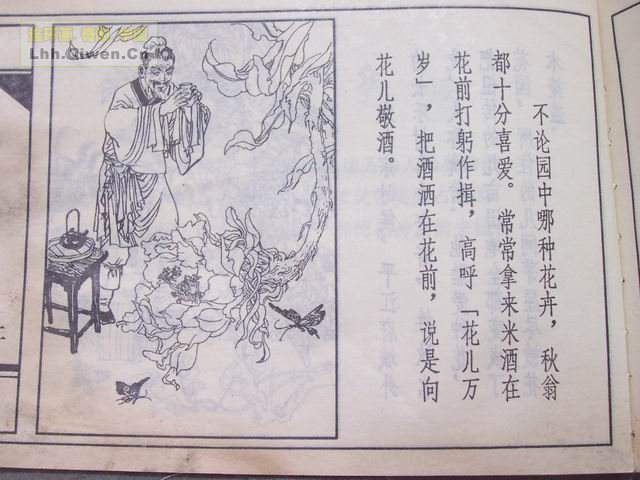 不论园中哪种花卉，秋翁
都十分喜爱。常常拿来米酒在
花前打躬作揖，高呼「花儿万
岁」，把酒洒在花前，说是向
花儿敬酒。
Lhh.Qiwen.Cn